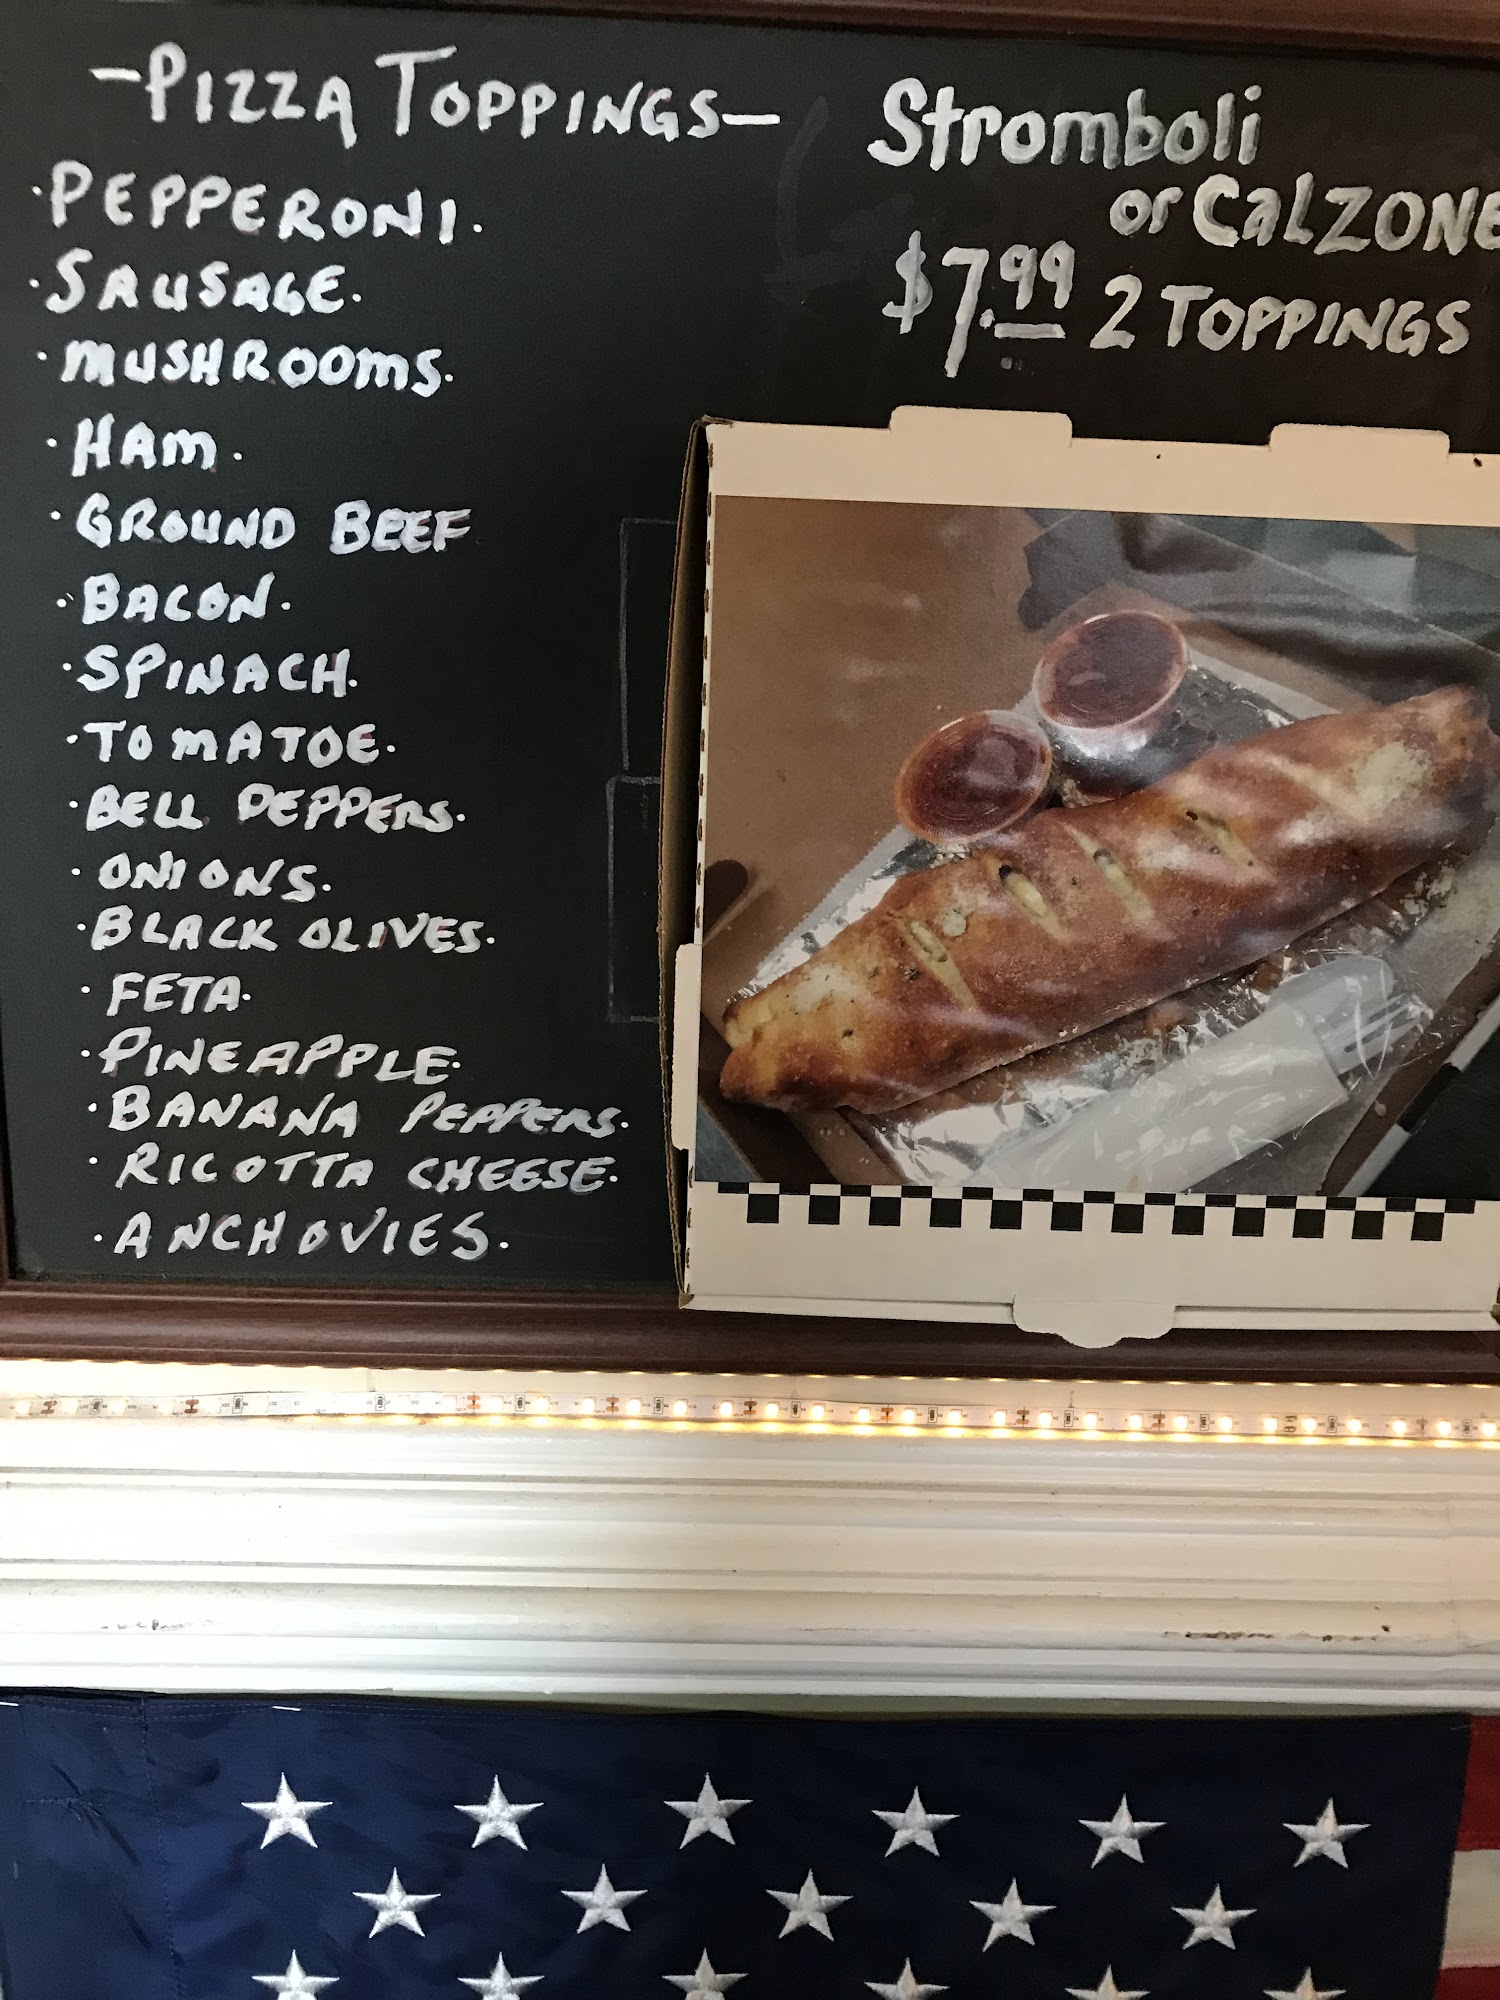 -PIZZA TOPPINGS-
·PEPPERONI.
·SAUSAGE.
·MUSHROOMS.
·HAM.
·GROUND BEEF
·BACON.
·SPINACH.
·TOMATOE.
·BELL PEPPERS.
·ONIONS.
·BLACK OLIVES.
·FETA.
·PINEAPPLE.
·BANANA PEPPERS.
·RICOTTA CHEESE.
·ANCHOVIES.
Stromboli
or CaLZONE
$7.99 2 TOPPINGS